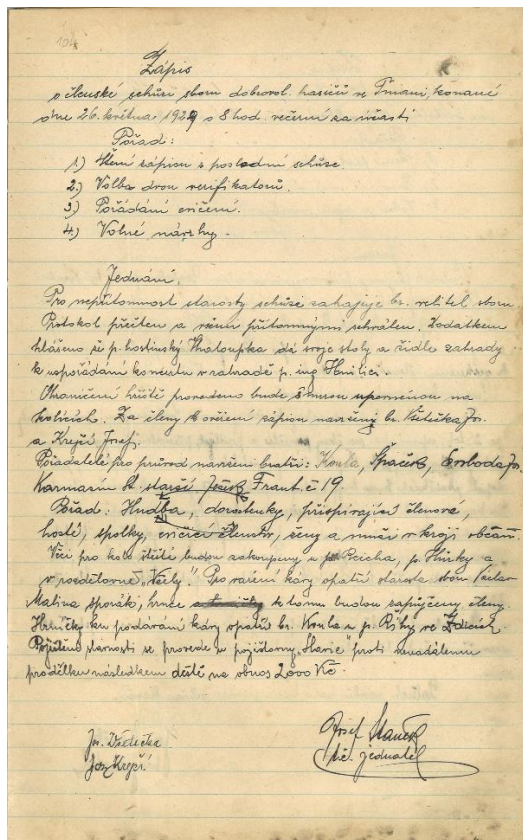 104
Zápis
o členské schůzi sboru dobrovol. hasičů ve Tmani, konané
dne 26. května 1929 o 8 hod. večerní za účasti
Pořad:
1.) Čtení zápisu z poslední schůze.
2.) Volba dvou verifikatorů.
3.) Pořádání cvičení.
4.) Volné návrhy.
Jednání.
Pro nepřítomnost starosty schůzi zahajuje br. velitel sboru
Protokol přečten a všemi přítomnými schválen. Dodatkem
hlášeno že p. hostinský Chaloupka dá svoje stoly a židle zahrady
k uspořádání koncertu v zahradě p. ing. Hniličí.
Ohraničení hřiště provedeno bude šňůrou upevněnou na
kolících. Za členy k ověření zápisu navrženi br. Vštička Jos.
a Krejčí Josef.
Pořadatelé pro průvod navrženi bratři: Koula, Špaček, Svoboda Jos.
Karmazín St. starší Frant. č 19
Pořad: Hudba, dorostenky, přispívající členové,
hosté, spolky, cvičící členstvo, ženy a muži v kroji občan.
Věci pro kolo štěstí budou zakoupeny u p. Reicha, p. Hůrky a
v prodělovně „Včely". Pro vaření kávy opatří starosta sboru Václav
Malina sporák, hrnce k tomu budou zapůjčeny členy.
Hrníčky ku podávání kávy opatří br. Koula u p. Říhy ve Zdicích
Pojištění slavnosti se provede u pojišťovny „Slavie" proti nenadálému
prodělku následkem deště na obnos 2000 Kč.
Jos. Vštička
Jos. Krejčí
Josef Vaněk
t.č. jednatel